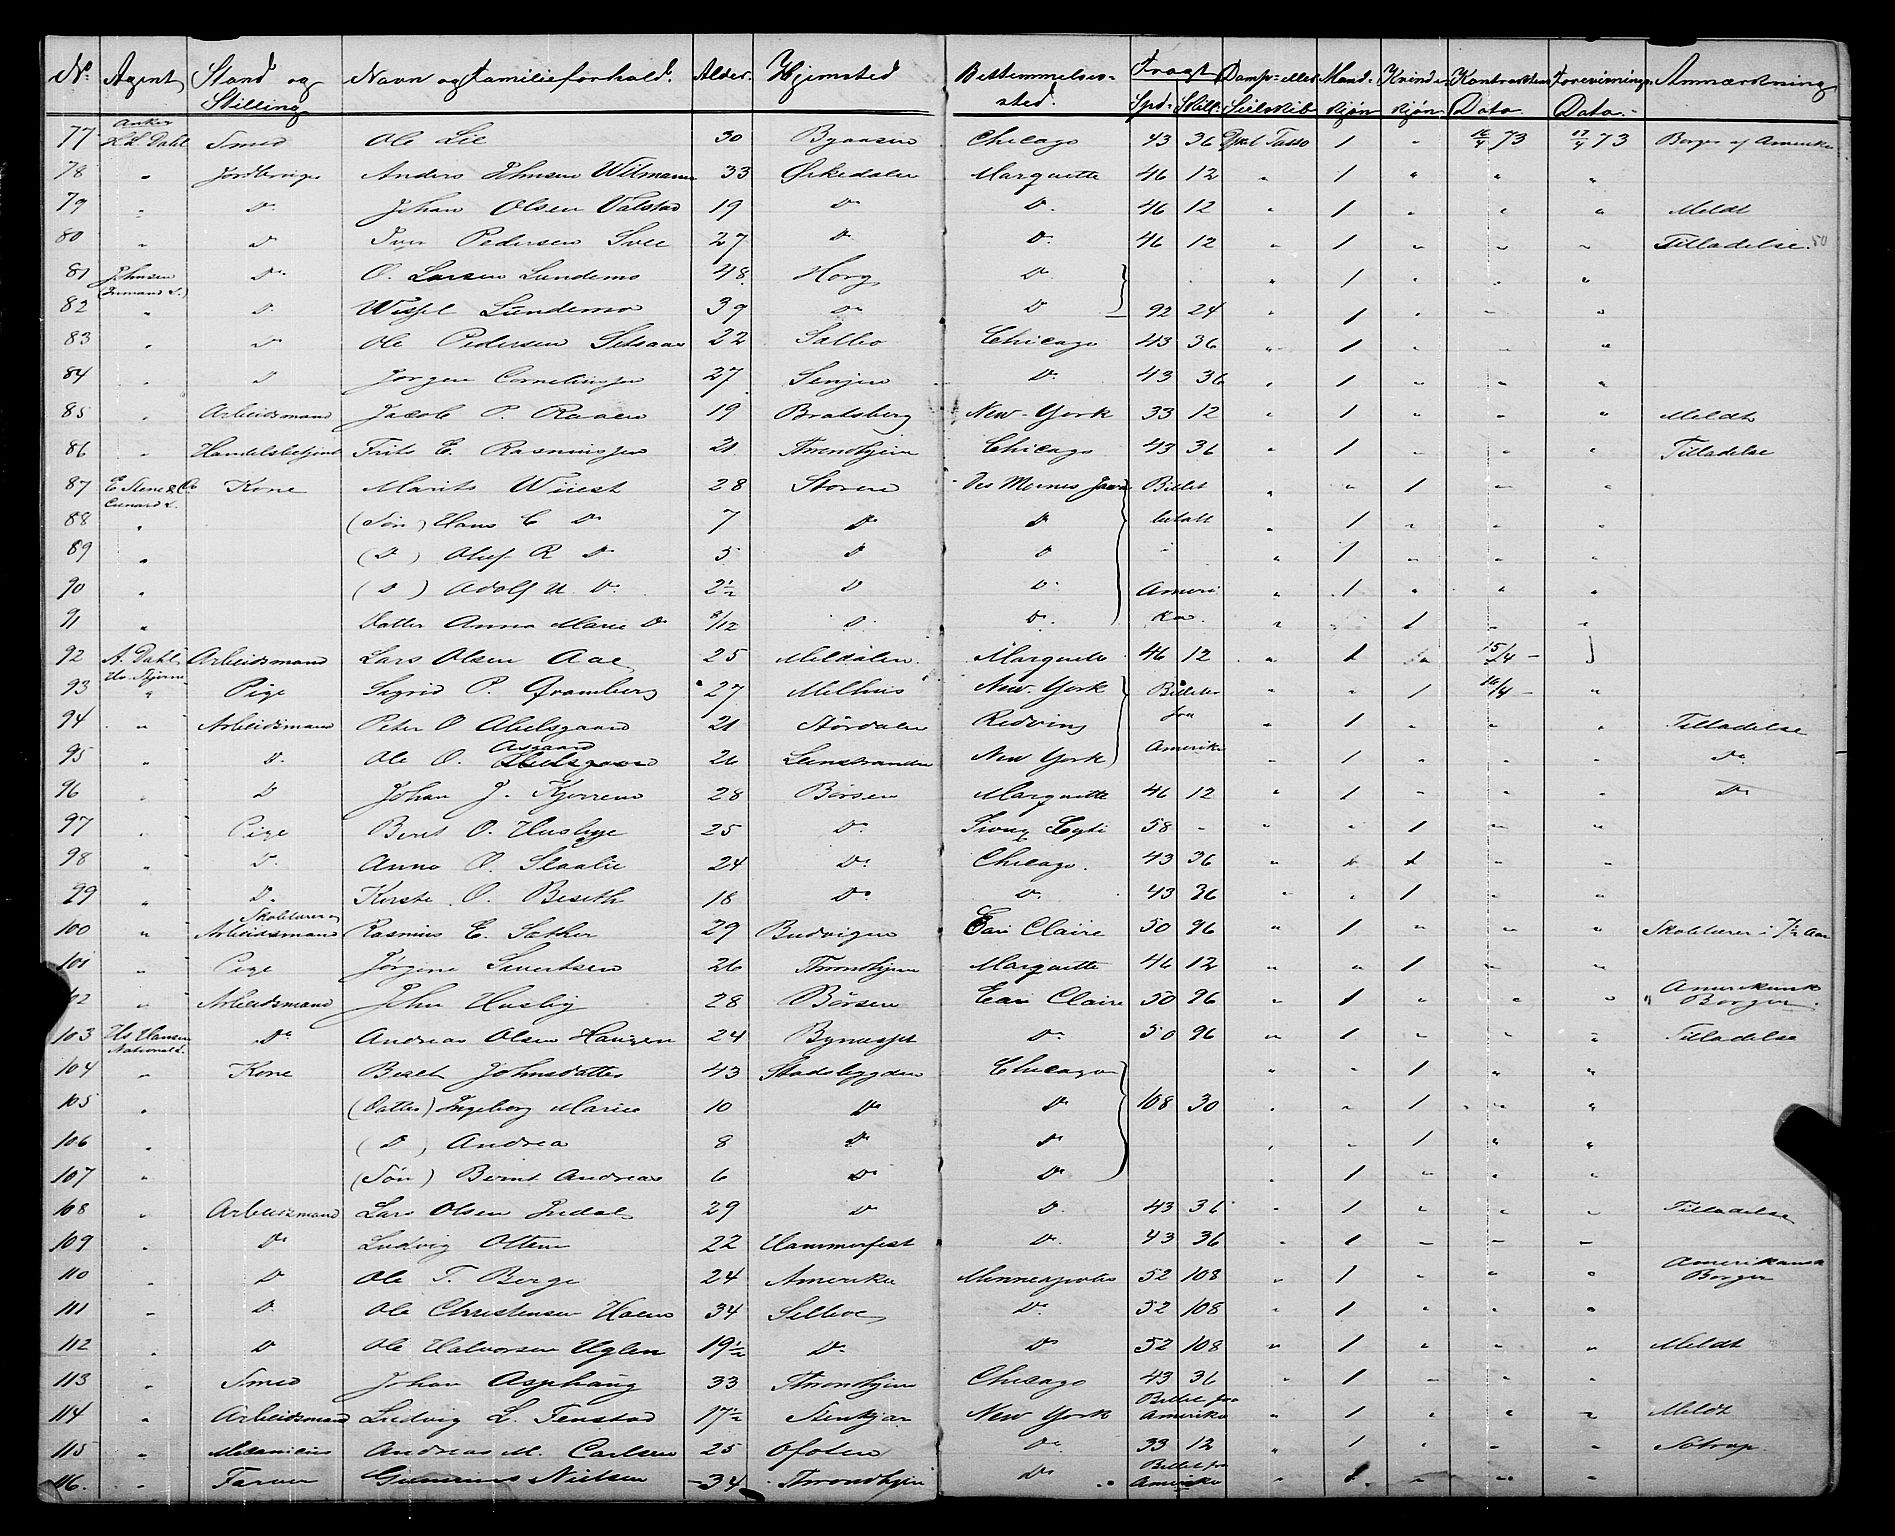 No. Agent Stand og Stilling Navn og Familieforhold. Alder. Hjemsted Bestemmelses-sted. Fragt Spd. Skill. Damp- eller Seilskib Mand-kjøn Kvinde-kjøn Kontraktens Data. Forevisnings Data. Anmærkning
77 Anker L. Dahl Smed Ole Lie 30 Bynæsen Chicago 43 36 Tasso 1 " 16/4 73 17/4 73 Borger af Amerika
78 " Anders Johnsen 33 Ørkedalen Marquette 46 12 " 1 " " "
79 " Do Johan Olsen Valstad 19 Do Do 46 12 " 1 " " " Meldt
80 " Do Iver Pedersen Svee 27 Do Do 46 12 " 1 " " " Tilladelse. 50
81 Johnsen (Inmand L.) Do O. Larsen Lundemo 48 Horg Do " 1 " " "
82 " Do Lundemo 39 Do Do 92 24 " 1 " " "
83 " Do Ole Pedersen 22 Selbo Chicago 43 36 " 1 " " "
84 " Do Jørgen Corneliussen 27 Senjen Do 43 36 " 1 " " "
85 " Arbeidsmand Jacob P. Raaen 19 Bratsberg New-York 33 12 " 1 " " " Meldt
86 " Handelsbetjent Frits E. Rasmussen 21 Throndhjem Chicago 43 36 " 1 " " " Tilladelse
87 E. Stene & Co Cunard L. Kone Marits Wiiest 28 Støren Des Moines Billet " " 1 " "
88 " (Søn) Hans C. Do 7 Do Do betalt " 1 " " "
89 " (Do) Oluf R. Do 5 Do Do " " 1 " " "
90 " (Do) Adolf U. Do 2½ Do Do Ameri " 1 " " "
91 " Datter Anna Marie Do 8/12 Do Do ka " " 1 " "
92 A. Dahl Arbeidsmand Lars Olsen Aae 25 Meldalen Marquette 46 12 " 1 " 15/4 "
93 " Pige Sigrid P. Gramberg 27 Melhus New-York Billet " " 1 16/4 "
94 " Arbeidsmand Peter O. Abelsgaard 21 Størdalen Redving fra " 1 " " " Tilladelse
95 " Do Ole O. Aasgaard 26 Leinstranden New York Amerika " 1 " " " Do
96 " Do Johan J. Kjørren 28 Børsen Marquette 46 12 " 1 " " " Do
97 " Pige Beret O. Husbye 25 Do Sioux City 58 - " " 1 " "
98 " Do Anna O. 24 Do Chicago. 43 36 " 1 1 " "
99 " Do Kirste O. Beseth 18 Do Do 43 36 " " 1 " "
100 " Skolelærer og Arbeidsmand Rasmus E. Sæther 29 Budvigen Eau Claire 50 96 " 1 " " " Skolelærer i 7½ Aar
101 " Pige Jørgine Sivertsen 26 Throndhjem Marquette 46 12 " " 1 " "
102 " Arbeidsmand John Husby 28 Børsen Eau Claire 50 96 " 1 " " " Amerikansk Borger
103 Hs Hansen National L. Do Andreas Olsen Haugen 24 Bynæsset Do 50 96 " 1 " " " Tilladelse
104 " Kone Beret Johnsdatter 43 Stadsbygden Chicago " " 1 " "
105 " (Datter) Ingeborg Marie 10 Do Do 108 30 " " 1 " "
106 " (Do) Andrea 8 Do Do " " 1 " "
107 " (Søn) Bernt Andreas 6 Do Do " 1 " " "
108 " Arbeidsmand Lars Olsen Indal 29 Do Do 43 36 " 1 " " " Tilladelse
109 " Do Ludvig Ottem 22 Hammerfest Do 43 36 " 1 " " "
110 " Do Ole T. Berge 24 Amerika Minneapolis 52 108 " 1 " " " Amerikansk Borger
111 " Do Ole Christensen Hoem 34 Selboe Do 52 108 " 1 " " "
112 " Do Ole Halvorsen Uglen 19½ Do Do 52 108 " 1 " " " Meldt
113 " Smed Johan Asphaug 33 Throndhjem Chicago 43 36 " 1 " " "
114 " Arbeidsmand Ludvig L. Fenstad 17½ Stenkjær New York Billet fra Amerika " 1 " " " Meldt
115 " Mekanicus Andreas M. Carlsen 25 Ofoten Do 33 12 " 1 " " "
116. " Farver Nielsen 34 Throndhjem Do Billet fra Amerika " 1 " " "